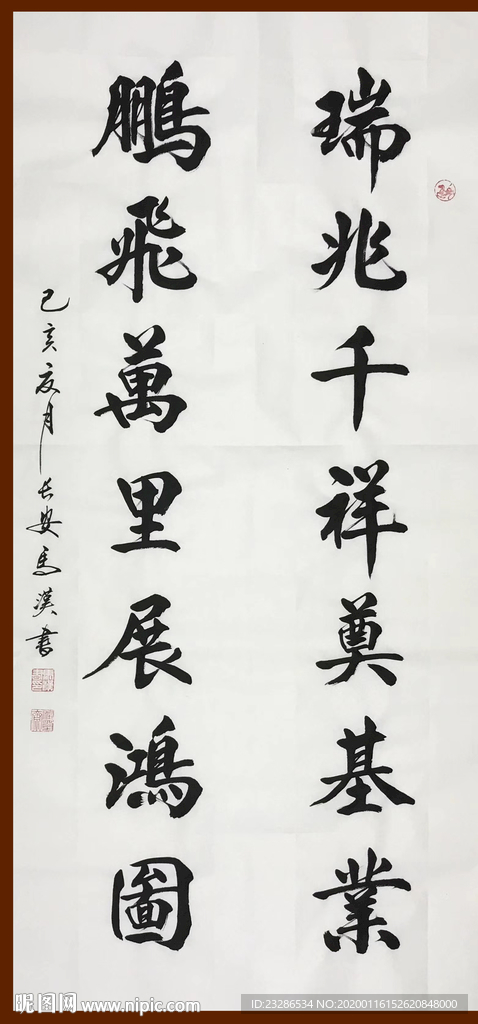 瑞兆千祥奠基業
鵬飛萬里展鴻圖
己亥夏月長安馬漢書
昵图网 www.nipic.com
ID:23286534 NO:20200116152620848000